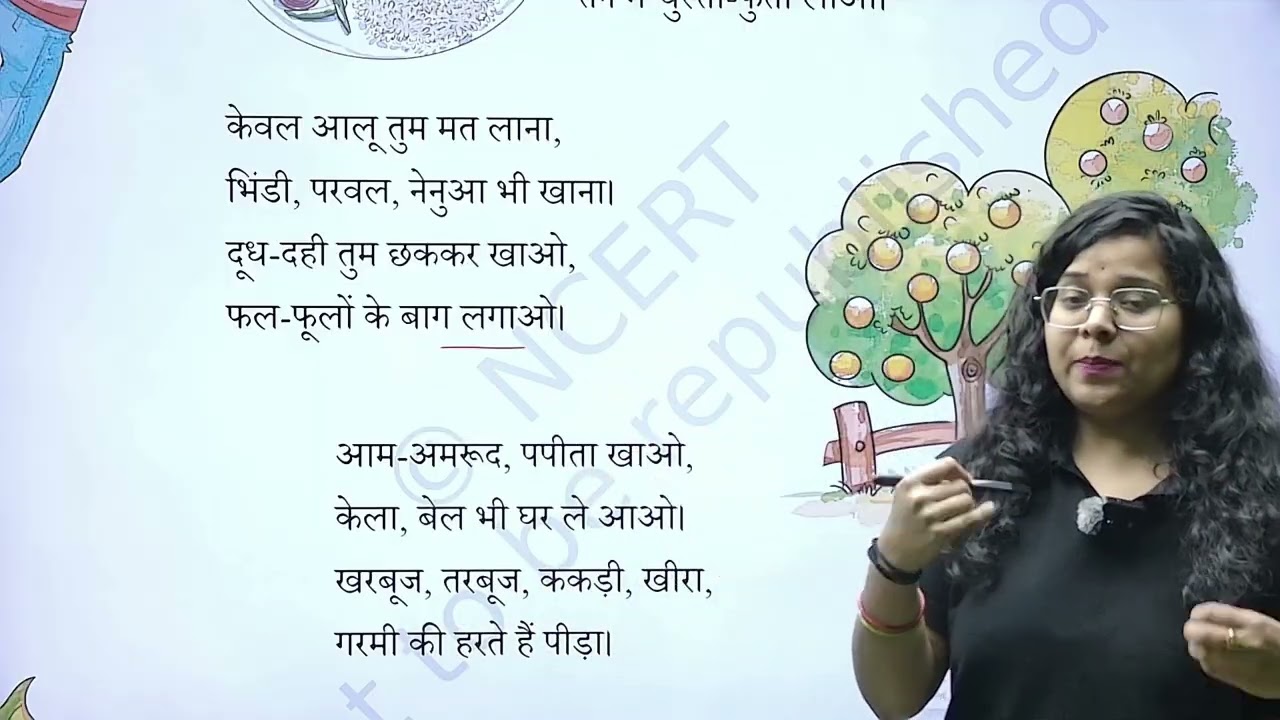 केवल आलू तुम मत लाना,
भिंडी, परवल, नेनुआ भी खाना।
दूध-दही तुम छककर खाओ,
फल-फूलों के बाग लगाओ।
आम-अमरूद, पपीता खाओ,
केला, बेल भी घर ले आओ।
खरबूज, तरबूज, ककड़ी, खीरा,
गरमी की हरते हैं पीड़ा।
© NCERT
be republished